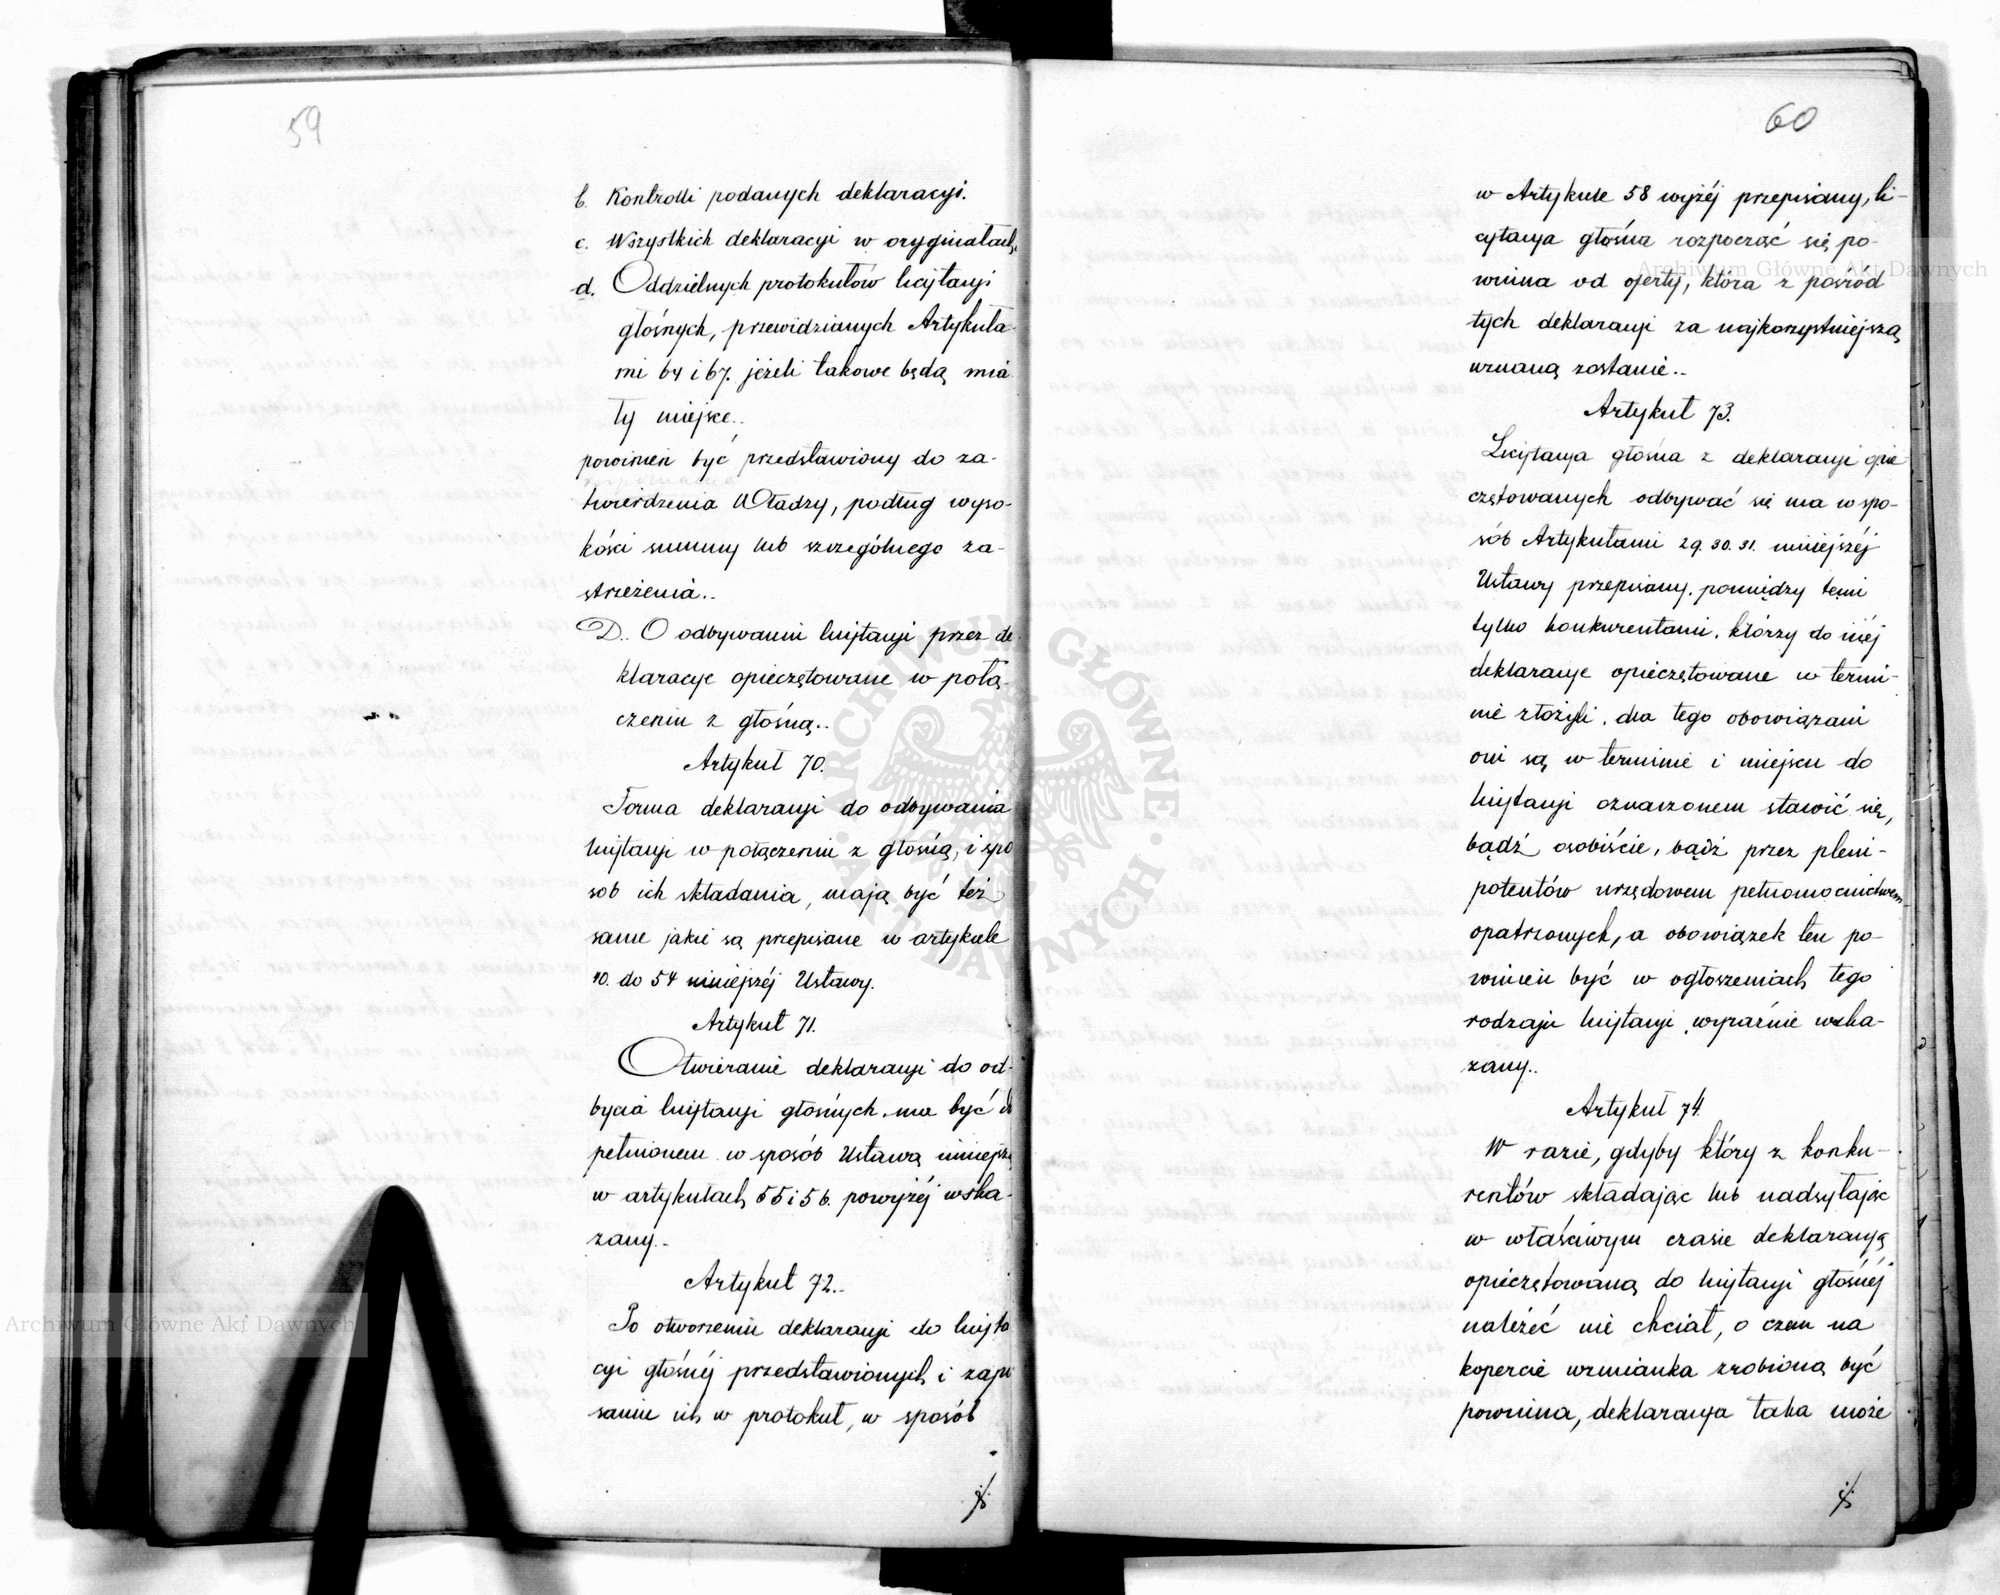 59
b. Kontrolli podanych deklaracyi.
c. Wszystkich deklaracyi w oryginałach,
d. Oddzielnych protokułów licytacyi
głośnych, przewidzianych Artykuła-
mi 64 i 67. jeżeli takowe będą mia-
ły miejsce..
powinien być przedstawiony do za-
twierdzenia Władzy, podług wyso-
kości summy lub szczególnego za-
strzeżenia..
D.. O odbywaniu licytacyi przez de-
klaracye opieczętowane w połą-
czeniu z głośną..
Artykuł 70.
Forma deklaracyi do odbywania
licytacyi w połączeniu z głośną, i spo
sob ich składania, mają być też
same jakie są przepisane w artykule
40. do 54 niniejszéj Ustawy.
Artykuł 71.
Otwieranie deklaracyi do od-
bycia licytacyi głośnych. ma być do
pełnionem w sposób Ustawą niniejszą
w artykułach 55 i 56. powyżéj wska-
zany..
Artykuł 72..
Po otworzeniu deklaracyi do licyta
cyi głośnéj przedstawionych i zapi
saniu ich w protokuł, w sposób
./.
60
w Artykule 58 wyżéj przepisany, li-
cytacya głośna rozpocząć się po-
winna od oferty, która z pośród
tych deklaracyi za najkorzystniejszą
uznaną zostanie..
Artykuł 73.
Licytacya głośna z deklaracyi opie
czętowanych odbywać się ma w spo-
sób Artykułami 29. 30. 31. niniejszéj
Ustawy przepisany. pomiędzy temi
tylko konkurentami. którzy do niéj
deklaracye opieczętowane w termi-
nie złożyli. dla tego obowiązani
oni są w terminie i miejscu do
licytacyi oznaczonem stawić się,
bądź osobiście, bądź przez pleni-
potentów urzędowem pełnomocnictwem
opatrzonych, a obowiązek ten po-
winien być w ogłoszeniach tego
rodzaju licytacyi wyraźnie wska-
zany..
Artykuł 74.
W razie, gdyby który z konku-
rentów składając lub nadsyłając
w właściwym czasie deklaracyą
opieczętowaną do licytacyi głośnéj
należéć nie chciał, o czem na
kopercie wzmianka zrobioną być
powinna, deklaracya taka może
./.
Archiwum Główne Akt Dawnych
Archiwum Główne Akt Dawnych
ARCHIWUM GŁÓWNE AKT DAWNYCH